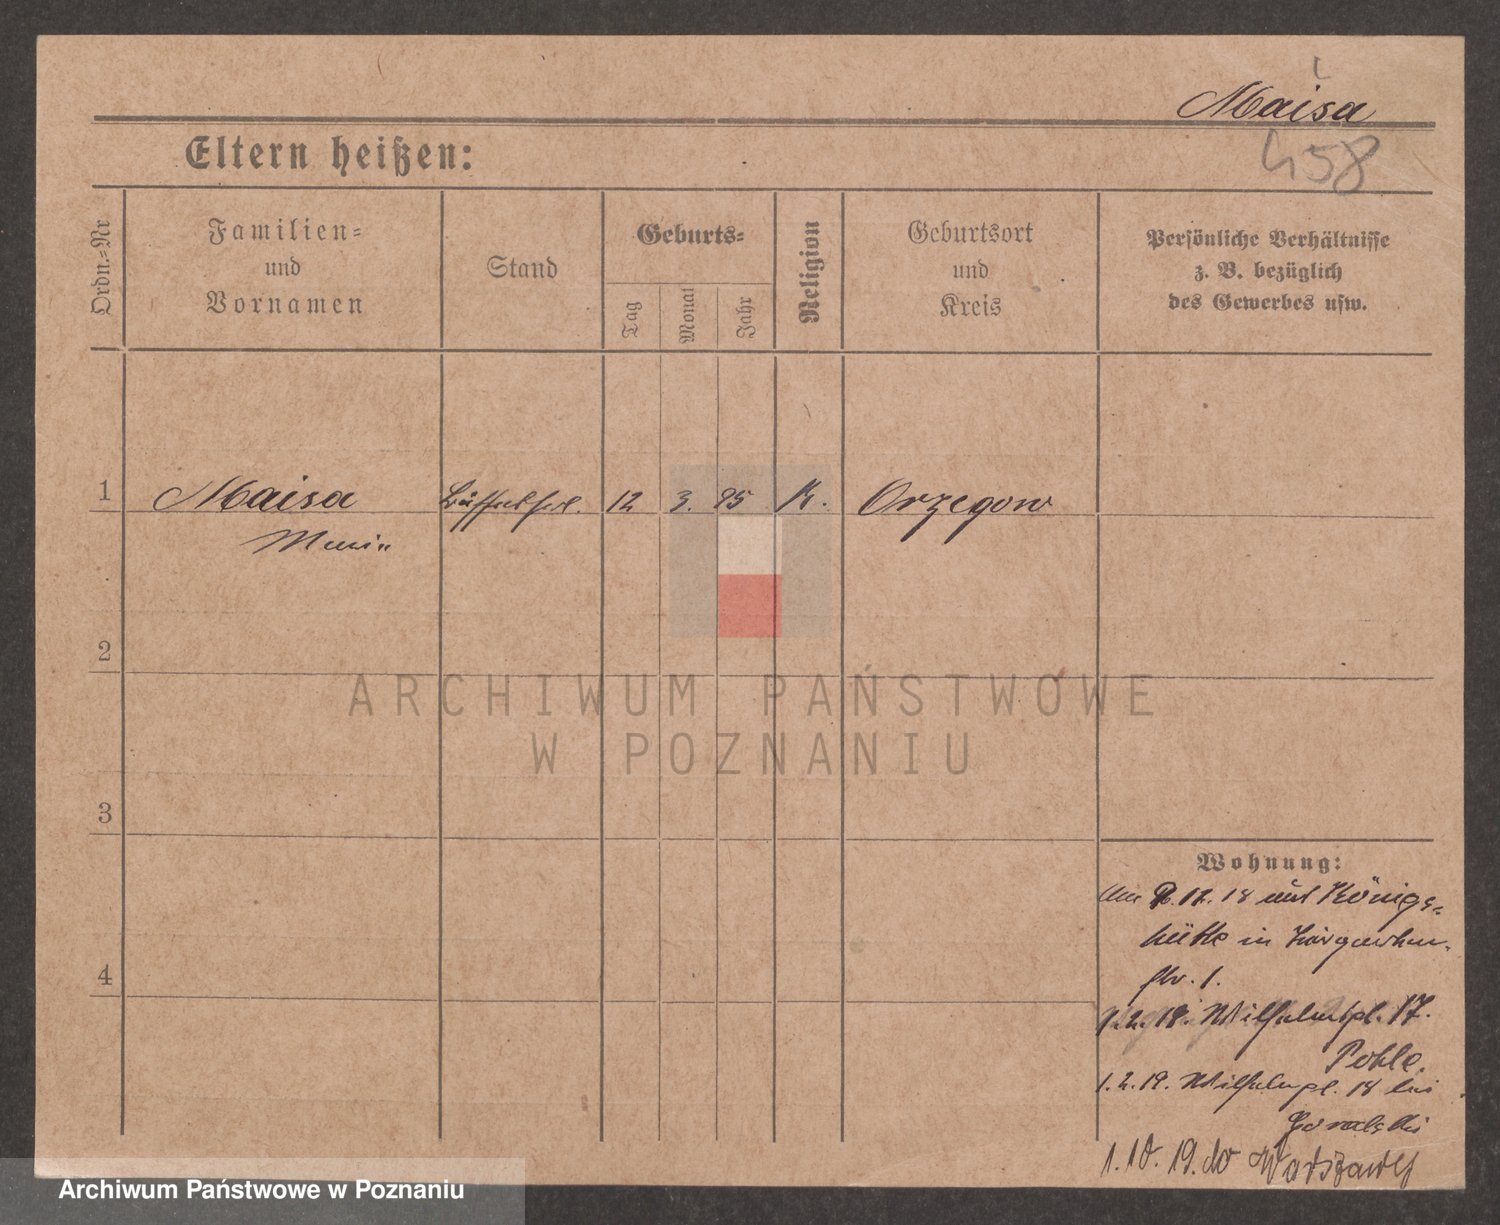 Maisa
458
Eltern heißen:
Ordn.-Nr
Familien- und Vornamen
Stand
Geburts-
Tag
Monat
Jahr
Religion
Geburtsort und Kreis
Persönliche Verhältnisse z. B. bezüglich des Gewerbes usw.
1 Maisa Büffetfrl. 12 3. 95 K. Orzegow
Marie
2
3
4
ARCHIWUM PAŃSTWOWE
W POZNANIU
Wohnung:
12. 18 aus Königs-
hütte in
str. 1.
Wilhelmspl. 17.
Pohle.
1.2.19. Wilhelmspl. 18 bei
Goralski
1.10.19. do Warszawy
Archiwum Państwowe w Poznaniu